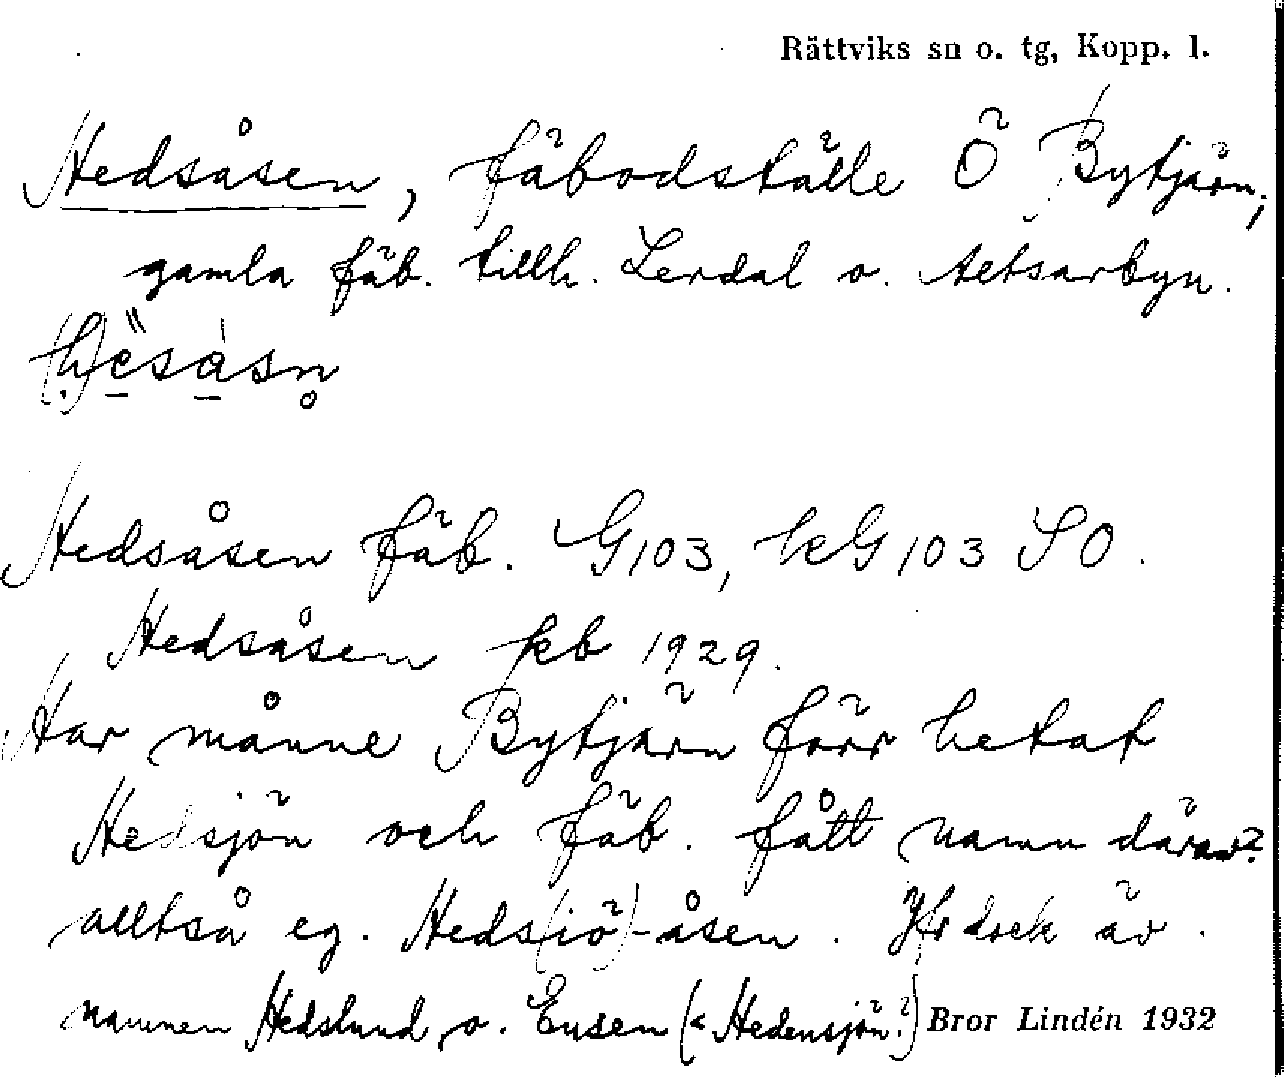 Rättviks sn o. tg, Kopp. l.
Hedsåsen, fäbodställe Ö Bytjärn,
gamla fäb. tillh. Lerdal o. Altsarbyn.
Hedsåsen fäb. G103, kG103 SO.
Hedsåsen kb 1929.
Har månne Bytjärn förr hetat
Hedsjön och fäb. fått namn därav?
alltså eg. Heds(jö)-åsen. Jfr dock äv.
namnen Hedslund o. Ensen (< Hedensjön?)
Bror Lindén 1932